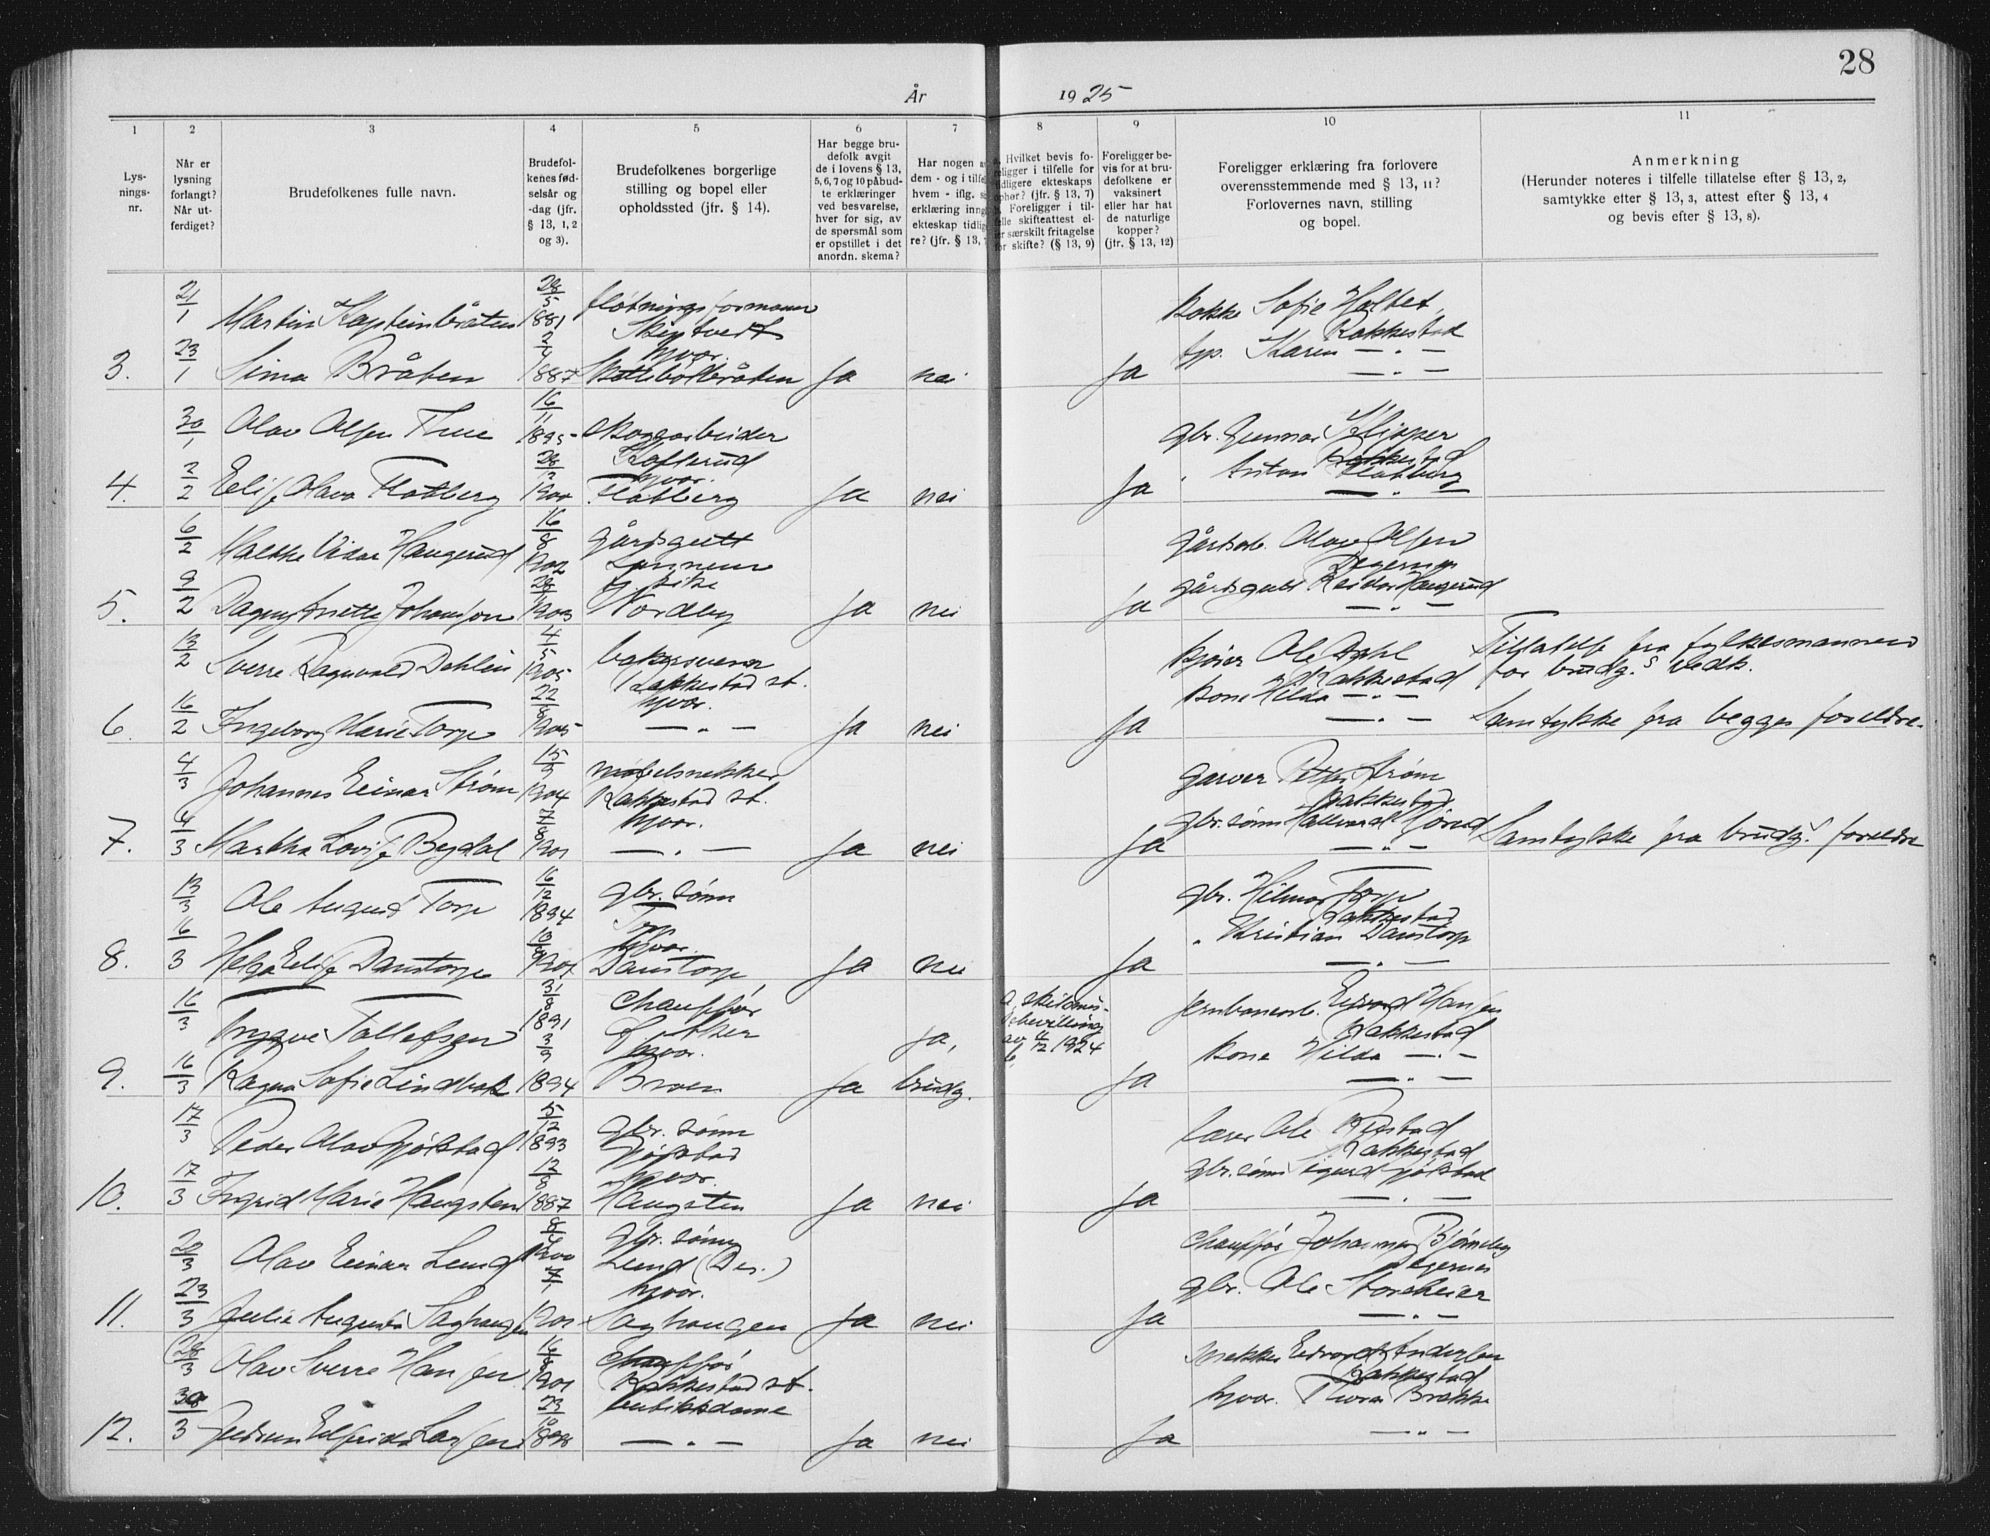 28
År 1925
1 2 3 4 5 6 7 8 9 10 11
Lys-
nings-
nr.
Når er
lysning
forlangt?
Når ut-
ferdiget?
Brudefolkenes fulle navn.
Brudefol-
kenes fød-
selsår og
-dag (jfr.
§ 13, 1, 2
og 3).
Brudefolkenes borgerlige
stilling og bopel eller
opholdssted (jfr. § 14).
Har begge bru-
defolk avgit
de i lovens § 13,
5, 6, 7 og 10 påbud-
te erklæringer
ved besvarelse,
hver for sig, av
de spørsmål som
er opstillet i det
anordn. skema?
Har nogen
dem - og i
hvem - iflg.
erklæring
ekteskap
re? (jfr. § 13,
Hvilket bevis fo-
religger i tilfelle for
tidligere ekteskaps
ophør? (jfr. § 13, 7)
Foreligger i til-
felle skifteattest el-
ler særskilt fritagelse
for skifte? (§ 13, 9)
Foreligger be-
vis for at bru-
defolkene er
vaksinert
eller har hat
de naturlige
kopper?
(jfr. § 13, 12)
Foreligger erklæring fra forlovere
overensstemmende med § 13, 11?
Forlovernes navn, stilling
og bopel.
Anmerkning
(Herunder noteres i tilfelle tillatelse efter § 13, 2,
samtykke efter § 13, 3, attest efter § 13, 4
og bevis efter § 13, 8).
21/1 Martin Kapteinbråten 28/5 1881 fløtningsformann Skiptvedt Sofie Holtet Rakkestad
3. 23/1 Bråten 2/4 1887 hjvor. Ja nei Ja Karen — „ —
30/1 Olav Olsen 16/11 1895 skogsarbeider gbr. Gunnar Rakkestad
4. 2/2 Flatberg 28/2 1900 hjvor. Flatberg Ja nei Ja „ Anton Flatberg — „ —
6/2 Vidar Haugerud 16/8 1902 gårdsgutt gårdsarb. Olav Olsen Degernes
5. 9/2 Dagny Anette Johansson 28/ 1903 pike Nordby Ja nei Ja gårdsgutt Reidar Haugerud — „ —
13/2 Sverre Ragnvald Dahlin 4/5 1905 bakersvenn Rakkestad st. Ole Dahl Rakkestad Tillatelse fra fylkesmannen
for brudg.s vedk.
6. 16/2 Ingeborg Marie Torp 22/8 1905 hjvor. — „ — Ja nei Ja Kone Hilda — „ — Samtykke fra begges foreldre.
4/3 Johannes Einar Strøm 15/9 1904 møbelsnekker Rakkestad st. garver Peter Strøm Rakkestad
7. 4/3 Martha Lovise Bydal 7/8 1901 hjvor. — „ — Ja nei Ja gbr. sønn Hallvard — „ — Samtykke fra brudg. foreldre
13/3 Ole August Torp 16/12 1894 gbr. sønn Torp gbr. Hilmar Torp Rakkestad
8. 16/3 Helga Elise Danstorp 13/ hjvor. Danstorp Ja nei Ja „ Kristian Danstorp — „ —
16/3 Trygve Tollefsen 31/8 1891 chauffør ja, a. skilsmis-
bevilling
av /12 1924
b.
jernbanearb. Edvard Hansen Rakkestad
9. 16/3 Ragna Sofie Lindbæk 3/9 1894 hjvor. Ja brudg. Ja Kone Hilda — „ —
17/3 Peder Olav Gjølstad 5/12 1893 gbr. sønn Gjølstad Ole Rakkestad
10. 17/3 Ingrid Marie Haugsten 12/8 1887 hjvor. Haugsten Ja nei Ja gbr. sønn Sigurd Gjølstad — „ —
20/3 Olav Einar Lund 8/4 1900 gbr. sønn Lund (Deg.) chauffør Johannes Bjørneby Degernes
11. 23/3 Julie Augusta Saghaugen 7/1 1901 hjvor. Saghaugen Ja nei Ja gbr. Ole — „ —
28/3 Olav Sverre Hansen 16/8 1901 chauffør Rakkestad st. snekker Edvard Andersen Rakkestad
12. 30/3 Larsen 23/10 1898 butikkdame — „ — Ja nei Ja hjvor. Thora Brække — „ —